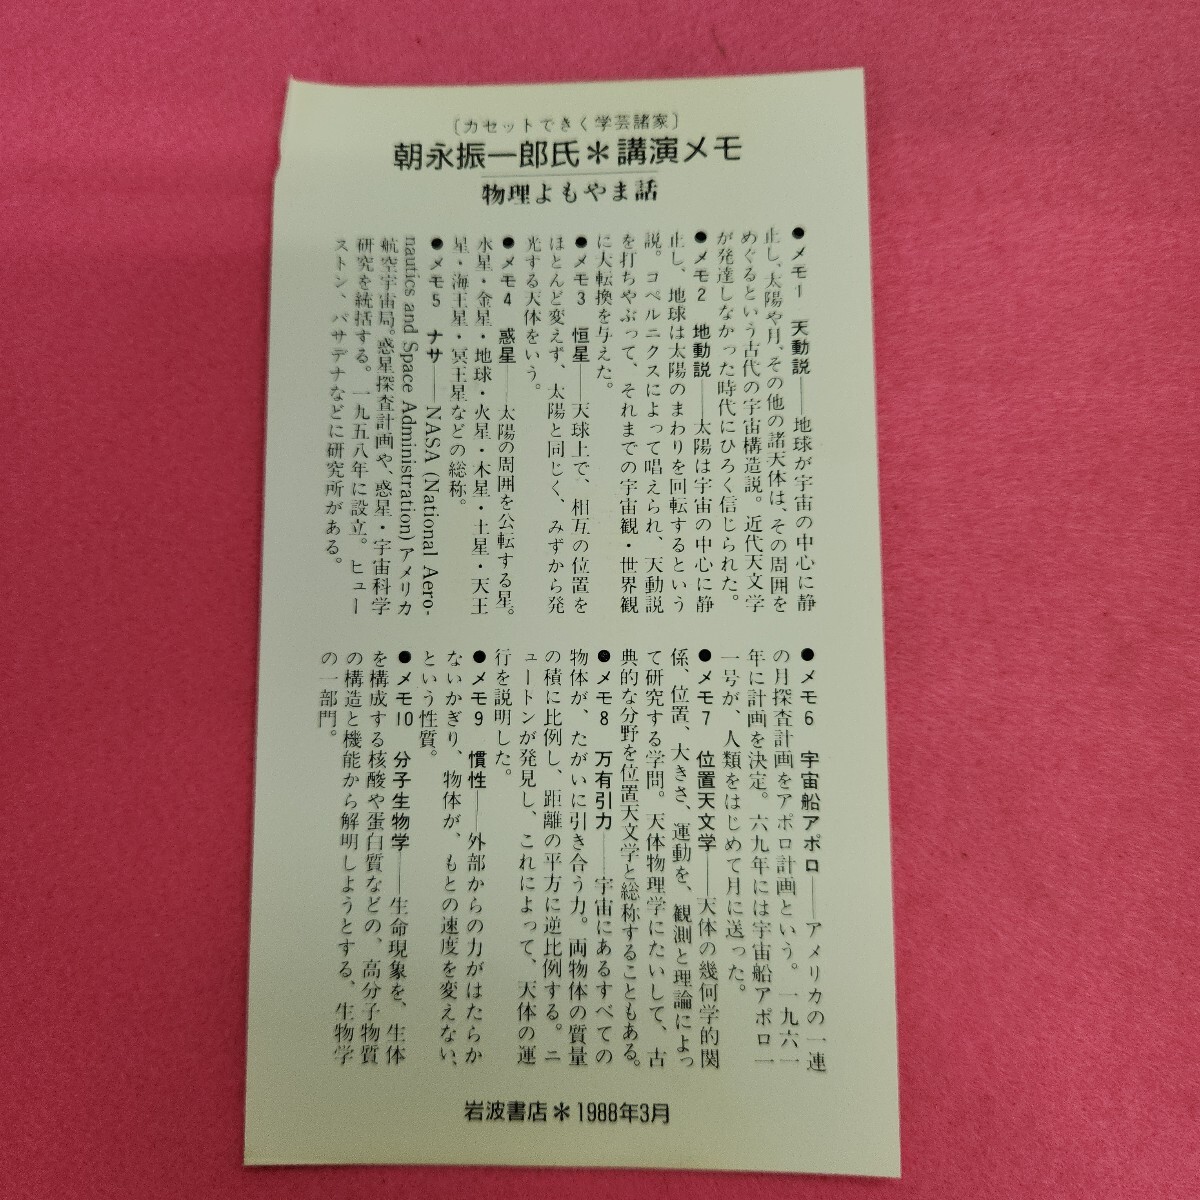 〔カセットできく学芸諸家〕
朝永振一郎氏＊講演メモ
物理よもやま話
●メモ1　天動説――地球が宇宙の中心に静
止し、太陽や月、その他の諸天体は、その周囲を
めぐるという古代の宇宙構造説。近代天文学
が発達しなかった時代にひろく信じられた。
●メモ2　地動説――太陽は宇宙の中心に静
止し、地球は太陽のまわりを回転するという
説。コペルニクスによって唱えられ、天動説
を打ちやぶって、それまでの宇宙観・世界観
に大転換を与えた。
●メモ3　恒星――天球上で、相互の位置を
ほとんど変えず、太陽と同じく、みずから発
光する天体をいう。
●メモ4　惑星――太陽の周囲を公転する星。
水星・金星・地球・火星・木星・土星・天王
星・海王星・冥王星などの総称。
●メモ5　ナサ――NASA (National Aero-
nautics and Space Administration) アメリカ
航空宇宙局。惑星探査計画や、惑星・宇宙科学
研究を統括する。一九五八年に設立。ヒュー
ストン、パサデナなどに研究所がある。
●メモ6　宇宙船アポロ――アメリカの一連
の月探査計画をアポロ計画という。一九六一
年に計画を決定。六九年には宇宙船アポロ一
一号が、人類をはじめて月に送った。
●メモ7　位置天文学――天体の幾何学的関
係、位置、大きさ、運動を、観測と理論によっ
て研究する学問。天体物理学にたいして、古
典的な分野を位置天文学と総称することもある。
●メモ8　万有引力――宇宙にあるすべての
物体が、たがいに引き合う力。両物体の質量
の積に比例し、距離の平方に逆比例する。ニ
ュートンが発見し、これによって、天体の運
行を説明した。
●メモ9　慣性――外部からの力がはたらか
ないかぎり、物体が、もとの速度を変えない、
という性質。
●メモ10　分子生物学――生命現象を、生体
を構成する核酸や蛋白質などの、高分子物質
の構造と機能から解明しようとする、生物学
の一部門。
岩波書店＊1988年3月